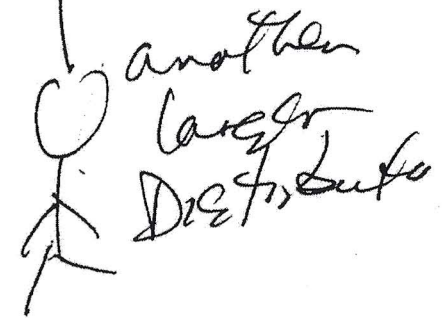 another
larger
Distributo